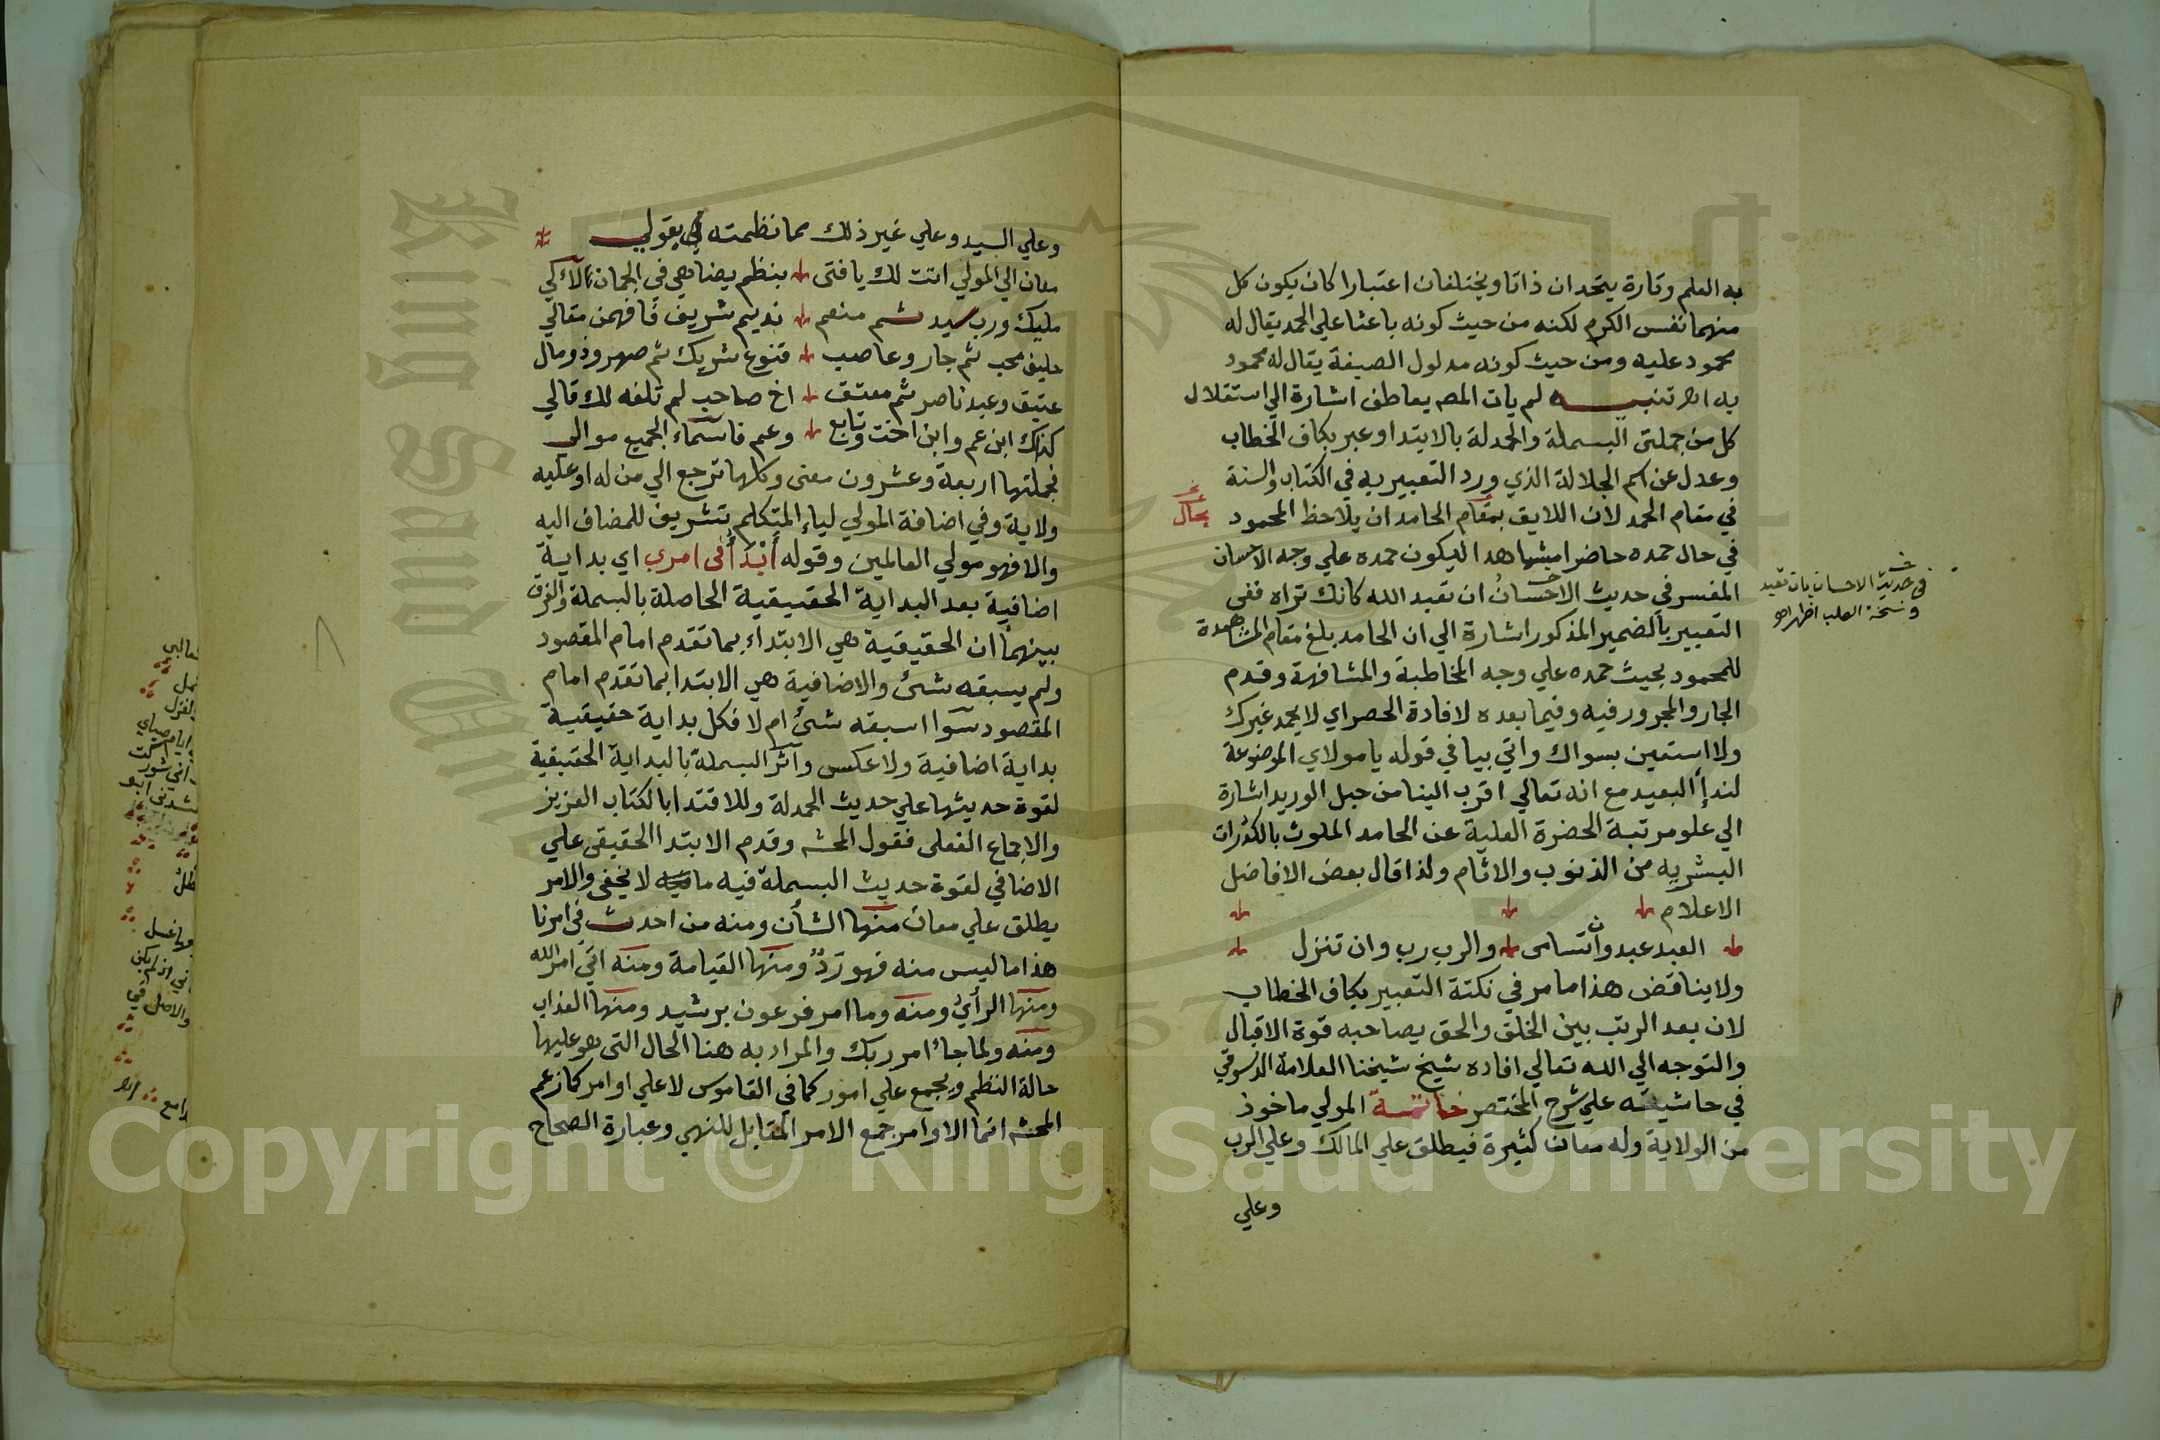 به العلم وتارة يتحدان ذاتا ويختلفان اعتبارا كان يكون كل
منهما نفس الكرم لكنه من حيث كونه باعثا علي الحمد يقال له
محمود عليه ومن حيث كونه مدلول الصيغة يقال له محمود
به اهـ تنبيه لم يات المصـ بعاطف اشارة الي استقلال
كل من جملتي البسملة والحمدلة بالابتدا وعبر بكاف الخطاب
وعدل عن اسم الجلالة الذي ورد التعبير به في الكتاب والسنة
في مقام الحمد لان اللايق بمقام الحامد ان يلاحظ المحمود
بحال
في حال حمده حاضرا مشاهدا ليكون حمده علي وجه الاحسان
المفسر في حديث الاحسان ان تعبد الله كانك تراه ففي
في حديث الاحسان بان تعبد
ونسخة الصلب اظهر اهـ
التعبير بالضمير المذكور اشارة الي ان الحامد بلغ مقام المشاهدة
للمحمود بحيث حمده علي وجه المخاطبة والمشافهة وقدم
الجار والمجرور فيه وفيما بعده لافادة الحصر اي لا يحمد غيرك
ولا استعين بسواك واتي بيا في قوله يا مولاي الموضوعة
لنداء البعيد مع انه تعالي اقرب الينا من حبل الوريد اشارة
الي علو مرتبة الحضرة العلية عن الحامد الملوث بالكدورات
البشريه من الذنوب والاثام ولذا قال بعض الافاضل
الاعلام
العبد عبد وان تسامى والرب رب وان تنزل
ولا يناقض هذا ما مر في نكتة التعبير بكاف الخطاب
لان بعد الرتب بين الخلق والحق يصاحبه قوة الاقبال
والتوجه الي الله تعالي افاده شيخ شيخنا العلامة الدسوقي
في حاشيته علي شرح المختصر خاتمة المولي ماخوذ
من الولاية وله معان كثيرة فيطلق علي المالك وعلي الرب
وعلي
وعلي السيد وعلي غير ذلك مما نظمته بقولي
معان الي المولي اتت لك يا فتى بنظم يضاهي في الجمان لآلئ
مليك ورب سيد ثم منعم نديم شريف فافهمن مقالي
حليف محب ثم جار وعاصب قنوع شريك ثم صهر وذو مال
عتيق وعبد ناصر ثم معتق اخ صاحب لم تلفه لك قالي
كذاك ابن عم وابن اخت وتابع وعم فاسماء الجميع موالى
فجملتها اربعة وعشرون معنى وكلها ترجع الي من له او عليه
ولاية وفي اضافة المولي لياء المتكلم تشريف للمضاف اليه
والا فهو مولي العالمين وقوله أبدأ في امري اي بداية
اضافية بعد البداية الحقيقية الحاصلة بالبسملة والفرق
بينهما ان الحقيقية هي الابتداء بما تقدم امام المقصود
ولم يسبقه شئ والاضافية هي الابتدا بما تقدم امام
المقصود سوا اسبقه شئ ام لا فكل بداية حقيقية
بداية اضافية ولا عكس وآثر البسملة بالبداية الحقيقية
لقوة حديثها علي حديث الحمدلة وللاقتدا بالكتاب العزيز
والاجماع الفعلى فقول المحشـ وقدم الابتدا الحقيقى علي
الاضافي لقوة حديث البسملة فيه ما لا يخفى والامر
يطلق علي معان منها الشأن ومنه من احدث في امرنا
هذا ما ليس منه فهو رد ومنها القيامة ومنه اتى امر الله
ومنها الرأي ومنه وما امر فرعون برشيد ومنها العذاب
ومنه ولما جاء امر ربك والمراد به هنا الحال التي هو عليها
حالة النظم ويجمع علي امور كما في القاموس لا علي اوامر كما زعم
المحشـ انما الاوامر جمع الامر المقابل للنهي وعبارة الصحاح
Copyright © King Saud University